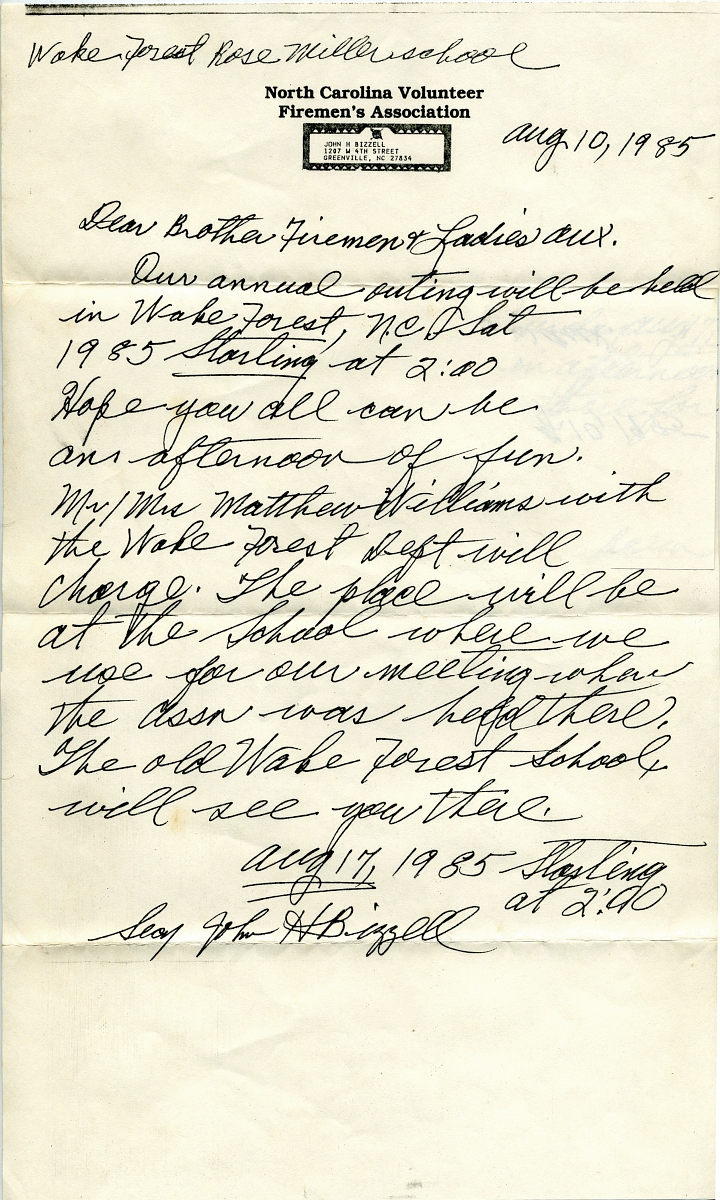 Wake Forest Rose Miller school
North Carolina Volunteer
Firemen's Association
JOHN H BIZZELL
1207 W 4TH STREET
GREENVILLE, NC 27834
Aug 10, 1985
Dear Brother Firemen & Ladies aux.
Our annual outing will be held
in Wake Forest, N.C. Sat
1985 Starting at 2:00
Hope you all can be
an afternoon of fun.
Mr/Mrs Matthew Williams with
the Wake Forest Dept will
charge. The place will be
at the School where we
use for our meeting when
the assn was held there.
The old Wake Forest School
will see you there.
Aug 17, 1985 Starting
at 2:00
Secy John H Bizzell